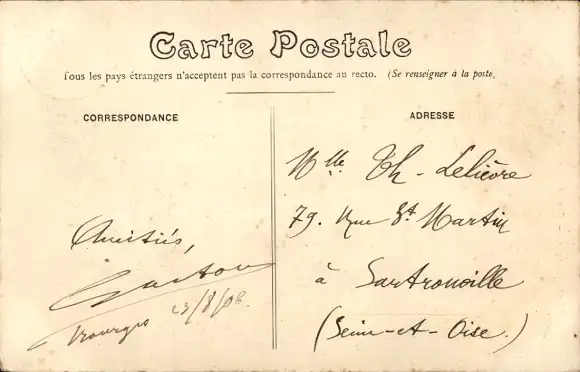 Carte Postale
Tous les pays étrangers n'acceptent pas la correspondance au recto. (Se renseigner à la poste,
CORRESPONDANCE
Amitiés,
Gaston
23/8/06.
ADRESSE
Mlle Th - Lelièvre
79. Rue St Martin
à Sartrouville
(Seine-et-Oise.)